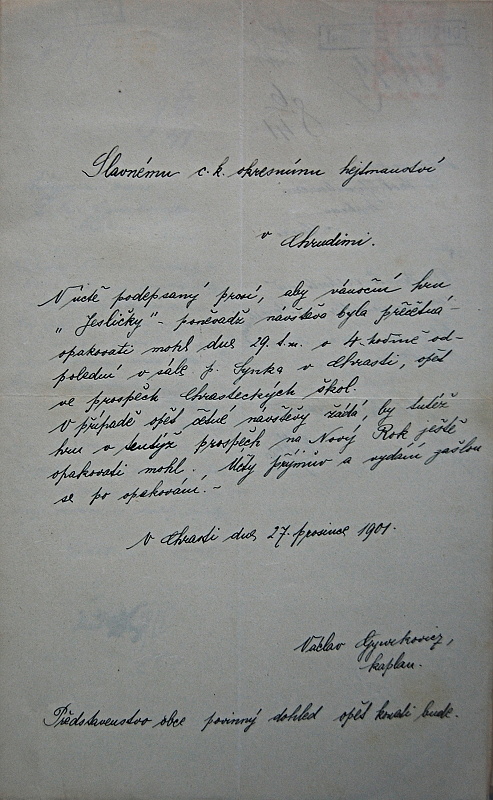 Slavnému c. k. okresnímu hejtmanství
v Chrudimi.
V úctě podepsaný prosí, aby vánoční hru
„Jesličky" – poněvadž návštěva byla přečetná –
opakovati mohl dne 29. t.m. o 4. hodině od-
polední v sále p. Synka v Chrasti, opět
ve prospěch Chrasteckých škol.
V případě opět četné návštěvy žádá, by tutéž
hru v tentýž prospěch na Nový Rok ještě
opakovati mohl. Účty příjmův a vydání zašlou
se po opakování. –
V Chrasti dne 27. prosince 1901.
Václav
kaplan.
Představenstvo obce povinný dohled opět konati bude.